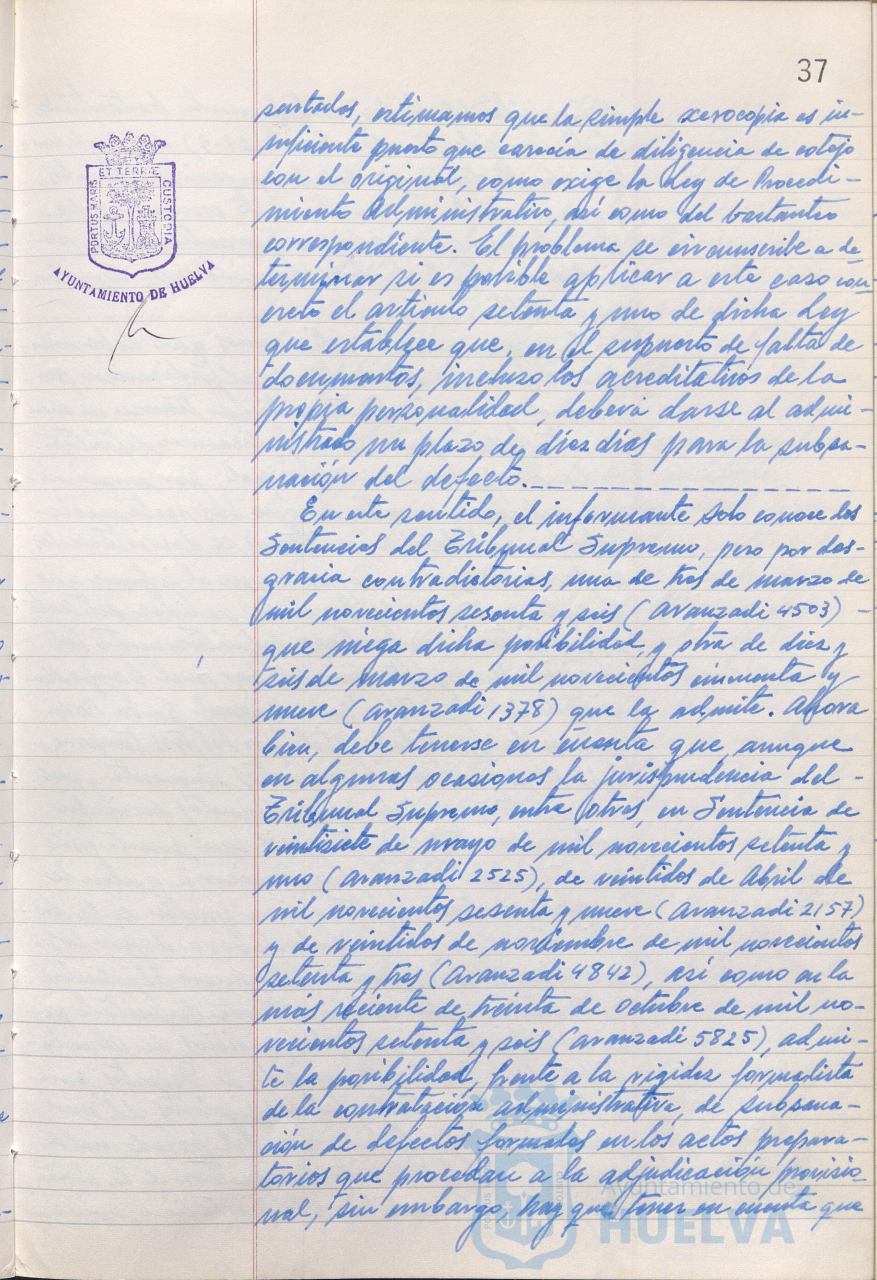 37
PORTUS MARIS
ET TERRÆ
CUSTODIA
AYUNTAMIENTO DE HUELVA
sentados, estimamos que la simple xerocopia es in-
suficiente puesto que carecía de diligencia de cotejo
con el original, como exige la Ley de Procedi-
miento Administrativo, así como del bastanteo
correspondiente. El problema se circunscribe a de
terminar si es posible aplicar a este caso con-
creto el artículo setenta y uno de dicha Ley
que establece que, en el supuesto de falta de
documentos, incluso los acreditativos de la
propia personalidad, deberá darse al admi-
nistrado un plazo de diez días para la subsa-
nación del defecto.
En este sentido, el informante solo conoce dos
Sentencias del Tribunal Supremo, pero por des-
gracia contradictorias, una de tres de marzo de
mil novecientos sesenta y seis (Aranzadi 4503) -
que niega dicha posibilidad, y otra de diez y
seis de marzo de mil novecientos cincuenta y
nueve (Aranzadi 1378) que la admite. Ahora
bien, debe tenerse en cuenta que, aunque
en algunas ocasiones la jurisprudencia del -
Tribunal Supremo, entre otras, en Sentencia de
veintisiete de mayo de mil novecientos setenta y
uno (Aranzadi 2525), de veintidos de Abril de
mil novecientos sesenta y nueve (Aranzadi 2157)
y de veintidos de noviembre de mil novecientos
setenta y tres (Aranzadi 4842), así como en la
más reciente de treinta de octubre de mil no-
vecientos setenta y seis (Aranzadi 5825), admi-
te la posibilidad, frente a la rigidez formalista
de la contratación administrativa, de subsana-
ción de defectos formales en los actos prepara-
torios que procedan a la adjudicación provisio-
nal, sin embargo, hay que tener en cuenta que
Ayuntamiento de
HUELVA